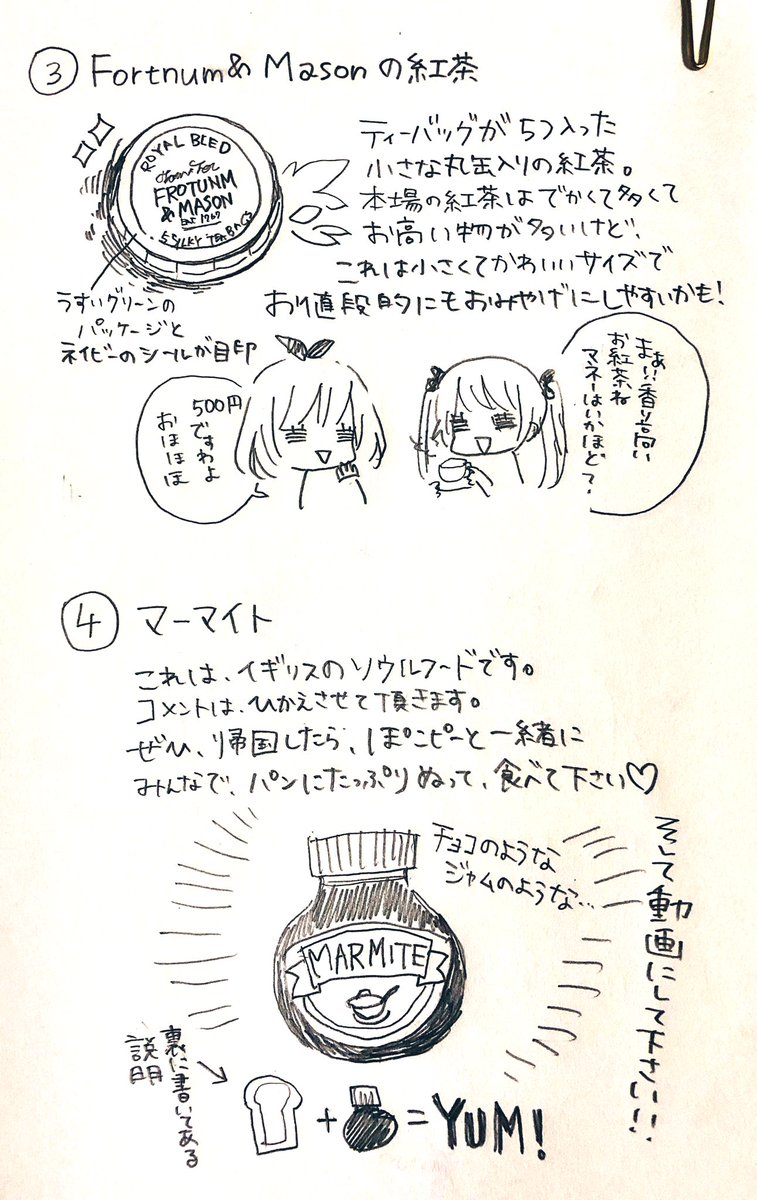 ③ Fortnum & Mason の紅茶
ティーバッグが5つ入った
小さな丸缶入りの紅茶。
本場の紅茶はでかくて多くて
お高い物が多いけど、
これは小さくてかわいいサイズで
お値段的にもおみやげにしやすいかも!
ROYAL BLED
FROTUNM
& MASON
EST 1767
5 SILKY TEA BAGS
うすいグリーンの
パッケージと
ネイビーのシールが目印
まぁ!!香り高い
お紅茶ね
マネーはいかほど?
500円
ですわよ
おほほほ
④ マーマイト
これは、イギリスのソウルフードです。
コメントは、ひかえさせて頂きます。
ぜひ、帰国したら、ぽこピーと一緒に
みんなで、パンにたっぷりぬって、食べて下さい♡
そして動画にして下さい!!
チョコのような
ジャムのような…
MARMITE
裏に書いてある
説明
+ = YUM!